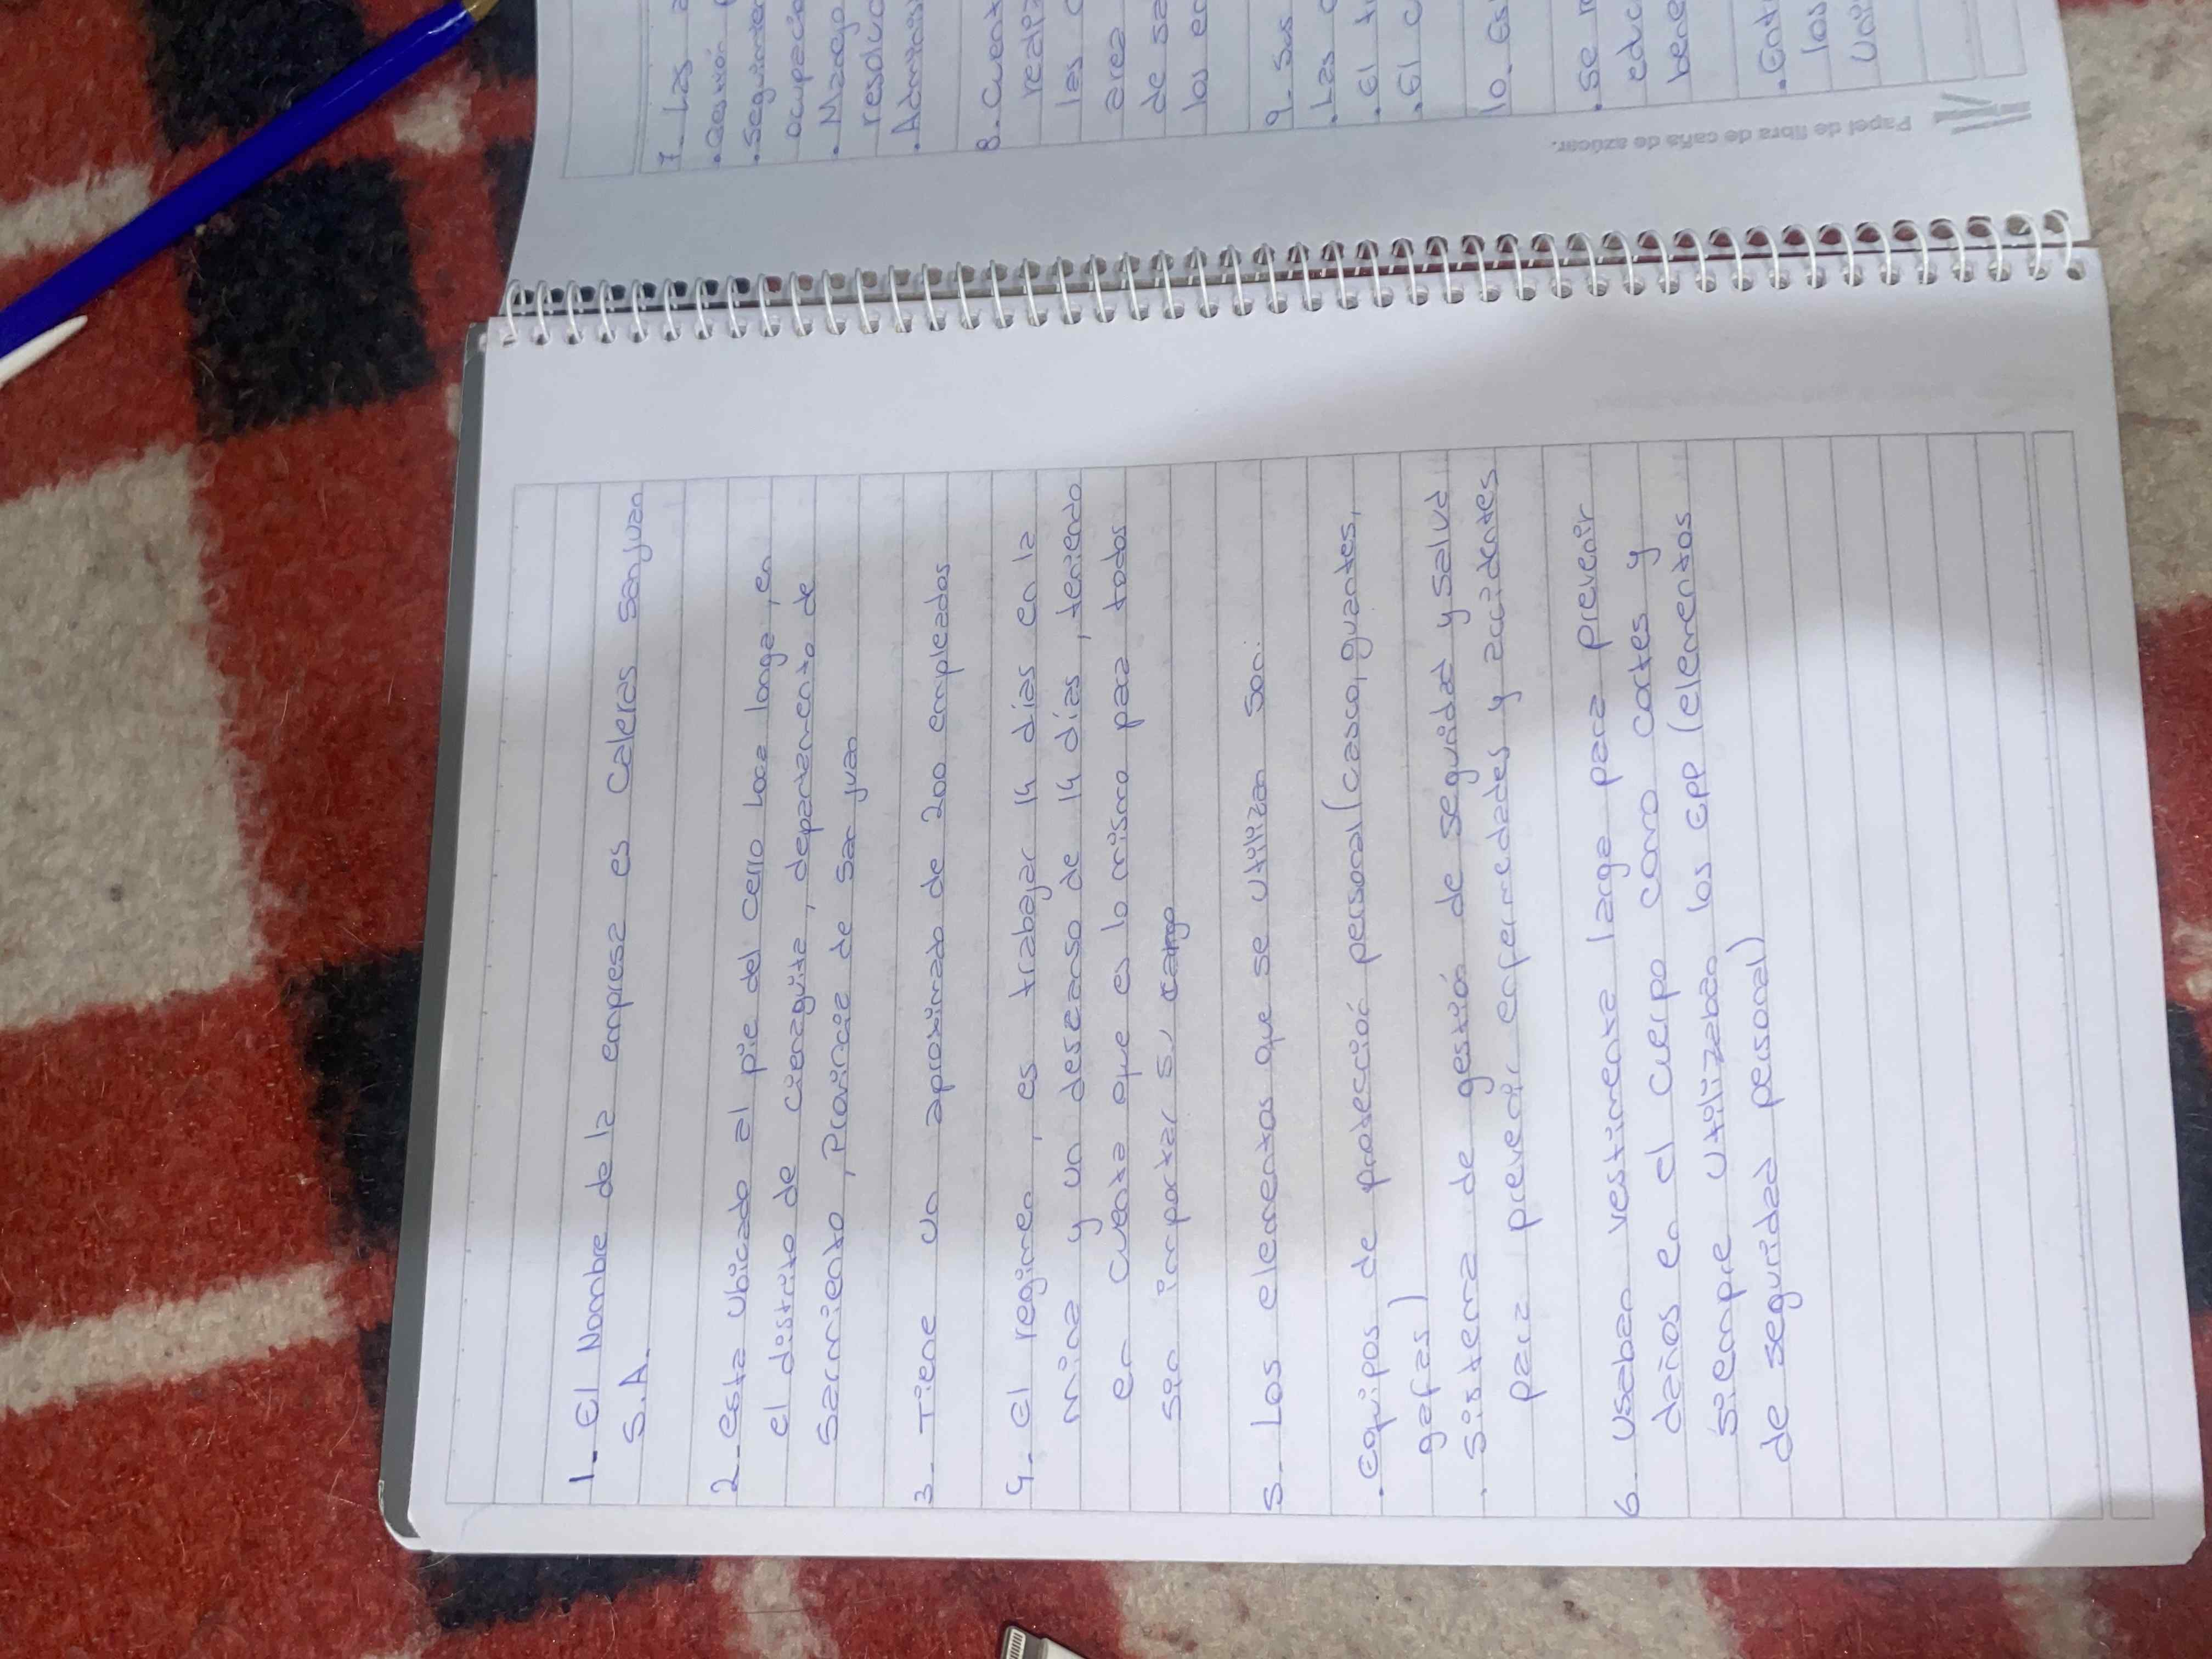 1- El Nombre de la empresa es Caleras San juan
S.A.
2- esta Ubicado al pie del cerro loca longa, en
el distrito de cienaguita, departamento de
Sarmiento, Provincia de San juan
3- Tiene un aproximado de 200 empleados
4- El regimen, es trabajar 14 días en la
mina y un descanso de 14 días, teniendo
en cuenta que es lo mismo paz todos
sin importar su cargo
5- Los elementos que se utilizan son:
. Equipos de protección personal (casco, guantes,
gafas)
. Sistema de gestión de seguridad y salud
para prevenir enfermedades y accidentes
6- Usaban vestimenta larga para prevenir
daños en el cuerpo como cortes y
siempre utilizaban los EPP (elementos
de seguridad personal)
7- Las
. Gestión
. Seguimien
ocupacio
. Manejo
residuo
. Administ
8- Cuent
realiz
las
area
de sa
los en
9- Sus
. Las
. El
. El
10- Es
. Se
educ
bene
. Ent
los
Uni
Papel de fibra de caña de azúcar.